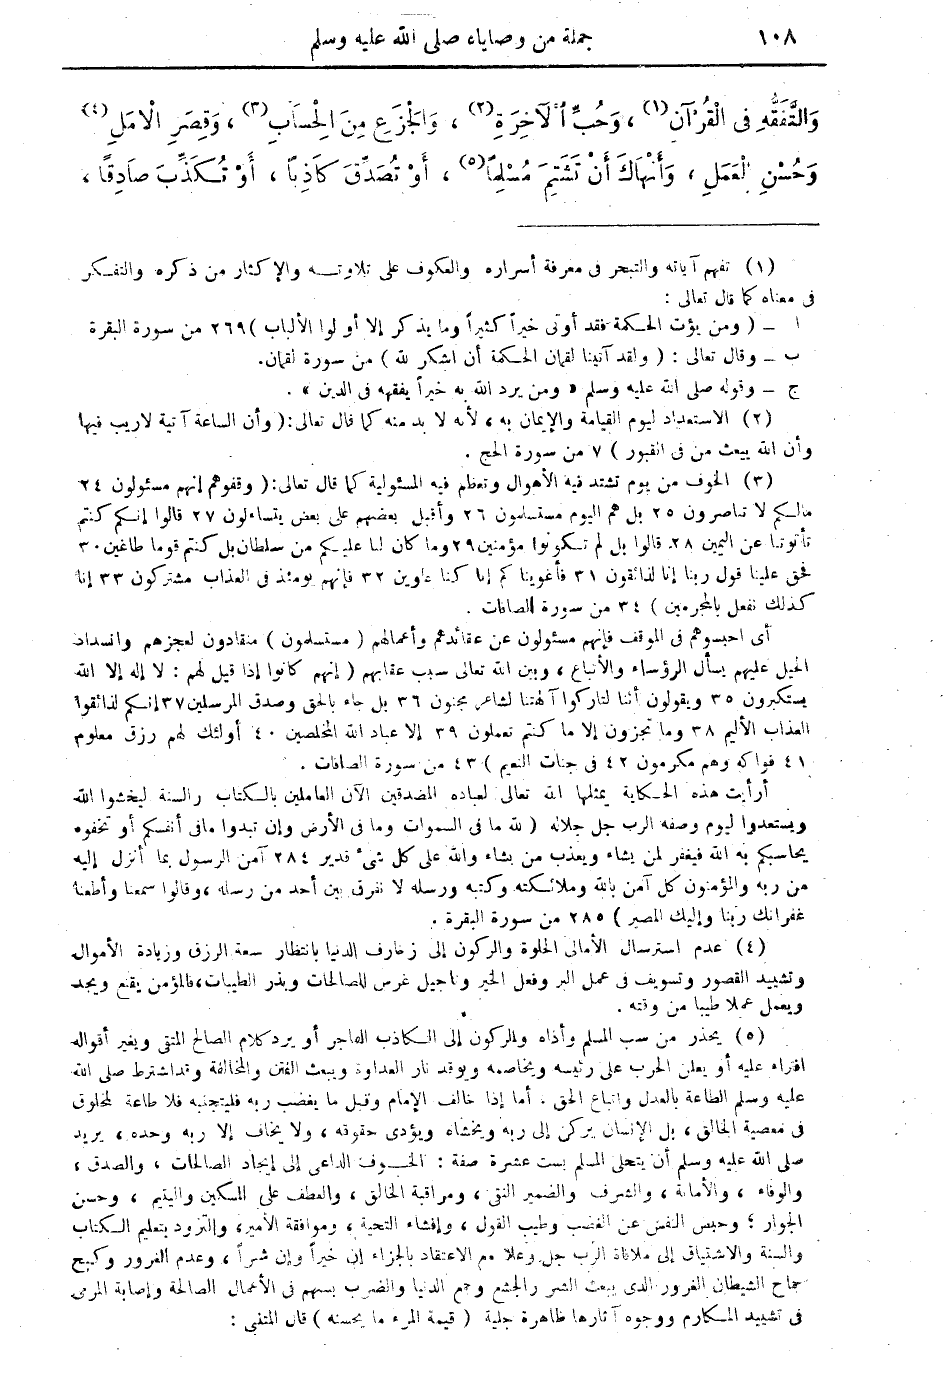 ١٠٨ جملة من وصاياه صلى الله عليه وسلم
وَالتَّفَقُّهِ فى الْقُرْآنِ(١) ، وَحُبِّ الْآخِرَةِ(٢) ، وَالْجَزَعِ مِنَ الْحِسَابِ(٣) ، وَقِصَرِ الْأَمَلِ(٤)
وَحُسْنِ الْعَمَلِ ، وَأَنْهَاكَ أَنْ تَشْتِمَ مُسْلِمًا(٥) ، أَوْ تُصَدِّقَ كَاذِبًا ، أَوْ تُكَذِّبَ صَادِقًا ،
(١) تفهم آياته والتبحر فى معرفة أسراره والعكوف على تلاوته والإكثار من ذكره والتفكر
فى معناه كما قال تعالى :
ا ــ ( ومن يؤت الحكمة فقد أوتى خيراً كثيراً وما يذكر إلا أولوا الألباب ) ٢٦٩ من سورة البقرة
ب ــ وقال تعالى : ( ولقد آتينا لقمان الحكمة أن اشكر لله ) من سورة لقمان.
ج ــ وقوله صلى الله عليه وسلم « ومن يرد الله به خيراً يفقهه فى الدين » .
(٢) الاستعداد ليوم القيامة والإيمان به ، لأنه لا بد منه كما قال تعالى:( وأن الساعة آتية لاريب فيها
وأن الله يبعث من فى القبور ) ٧ من سورة الحج .
(٣) الخوف من يوم تشتد فيه الأهوال وتعظم فيه المسئولية كما قال تعالى:( وقفوهم إنهم مسئولون ٢٤
مالكم لا تناصرون ٢٥ بل هم اليوم مستسلمون ٢٦ وأقبل بعضهم على بعض يتساءلون ٢٧ قالوا إنكم كنتم
تأتوننا عن اليمين ٢٨ قالوا بل لم تكونوا مؤمنين ٢٩ وما كان لنا عليكم من سلطان بل كنتم قوما طاغين ٣٠
فحق علينا قول ربنا إنا لذائقون ٣١ فأغويناكم إنا كنا غاوين ٣٢ فإنهم يومئذ فى العذاب مشتركون ٣٣ إنا
كذلك نفعل بالمجرمين ) ٣٤ من سورة الصافات .
أى احبسوهم فى الموقف فإنهم مسئولون عن عقائدهم وأعمالهم ( مستسلمون ) منقادون لعجزهم وانسداد
الحيل عليهم يسأل الرؤساء والأتباع ، وبين الله تعالى سبب عقابهم ( إنهم كانوا إذا قيل لهم : لا إله إلا الله
يستكبرون ٣٥ ويقولون أئنا لتاركوا آلهتنا لشاعر مجنون ٣٦ بل جاء بالحق وصدق المرسلين ٣٧ إنكم لذائقوا
العذاب الأليم ٣٨ وما تجزون إلا ما كنتم تعملون ٣٩ إلا عباد الله المخلصين ٤٠ أولئك لهم رزق معلوم
٤١ فواكه وهم مكرمون ٤٢ فى جنات النعيم ) ٤٣ من سورة الصافات .
أرأيت هذه الحكاية يمثلها الله تعالى لعباده المصدقين الآن العاملين بالكتاب والسنة ليخشوا الله
ويستعدوا ليوم وصفه الرب جل جلاله ( لله ما فى السموات وما فى الأرض وإن تبدوا مافى أنفسكم أو تخفوه
يحاسبكم به الله فيغفر لمن يشاء ويعذب من يشاء والله على كل شىء قدير ٢٨٤ آمن الرسول بما أنزل إليه
من ربه والمؤمنون كل آمن بالله وملائكته وكتبه ورسله لا نفرق بين أحد من رسله ، وقالوا سمعنا وأطعنا
غفرانك ربنا وإليك المصير ) ٢٨٥ من سورة البقرة .
(٤) عدم استرسال الأمانى الحلوة والركون إلى زخارف الدنيا بانتظار سعة الرزق وزيادة الأموال
وتشييد القصور وتسويف فى عمل البر وفعل الخير وتأجيل غرس الصالحات وبذر الطيبات، فالمؤمن يقنع ويجد
ويعمل عملا طيبا من وقته .
(٥) يحذر من سب المسلم وأذاه والركون إلى الكاذب الفاجر أو يرد كلام الصالح المتقى ويغير أقواله
افتراء عليه أو يعلن الحرب على رئيسه ويخاصمه ويوقد نار العداوة ويبعث الفتن والمخالفة وقد اشترط صلى الله
عليه وسلم الطاعة بالعدل واتباع الحق . أما إذا خالف الإمام وقبل ما يغضب ربه فليتجنبه فلا طاعة لمخلوق
فى معصية الخالق ، بل الإنسان يركن إلى ربه ويخشاه ويؤدى حقوقه ، ولا يخاف إلا ربه وحده ، يريد
صلى الله عليه وسلم أن يتحلى المسلم بست عشرة صفة : الخوف الداعى إلى إيجاد الصالحات ، والصدق ،
والوفاء ، والأمانة ، والشرف والضمير النقى ، ومراقبة الخالق ، والعطف على المسكين واليتيم ، وحسن
الجوار ؛ وحبس النفس عن الغضب وطيب القول ، وإفشاء التحية ، وموافقة الأمير، والتزود بتعليم الكتاب
والسنة والاشتياق إلى ملاقاة الرب جل وعلا مع الاعتقاد بالجزاء إن خيراً وإن شراً ، وعدم الغرور وكبح
جماح الشيطان الغرور الذى يبعث الشر والجشع وجمع الدنيا والضرب بسهم فى الأعمال الصالحة وإصابة المرمى
فى تشييد المكارم ووجوه آثارها ظاهرة جلية ( قيمة المرء ما يحسنه ) قال المتنبى :